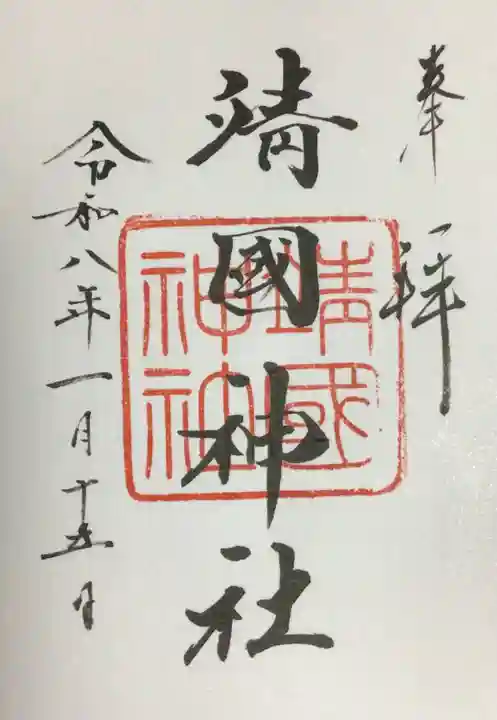 奉拝
靖國神社
靖国神社
令和八年一月十五日